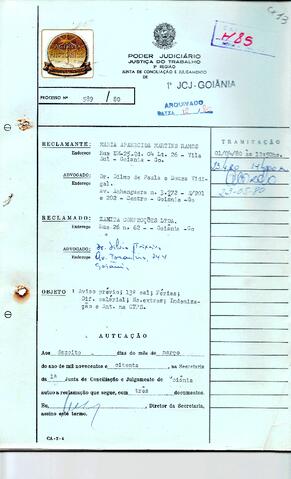 H85
PODER JUDICIÁRIO
JUSTIÇA DO TRABALHO
3ª REGIÃO
JUNTA DE CONCILIAÇÃO E JULGAMENTO
DE
1ª JCJ-GOIÂNIA
PROCESSO Nº 589 / 80
ARQUIVADO
RECLAMANTE: MARIA APARECIDA MARTINS RAMOS
Endereço
Lt. 26 - Vila
- Goiânia - Go.
ADVOGADO: Dr. Dilmo de Paula e Souza
Endereço
Av. Anhanguera n. 3.972 - S/201
e 202 - Centro - Goiânia - Go
RECLAMADO: ZAMITA CONFECÇÕES LTDA.
Endereço Rua 26 n. 62 -- Goiânia - Go
ADVOGADO:
Endereço
Goiânia
OBJETO : Aviso prévio; 13º sal; Férias;
Dif. salarial; Hs.extras; Indeniza-
ção e Ant. na CTPS.
TRAMITAÇÃO
23-05-80
AUTUAÇÃO
Aos dezoito dias do mês de março
do ano de mil novecentos e oitenta, na Secretaria
da 1ª Junta de Conciliação e Julgamento de Goiânia
autuo a reclamação que segue, com três documentos.
Eu, Diretor da Secretaria,
assino este termo.